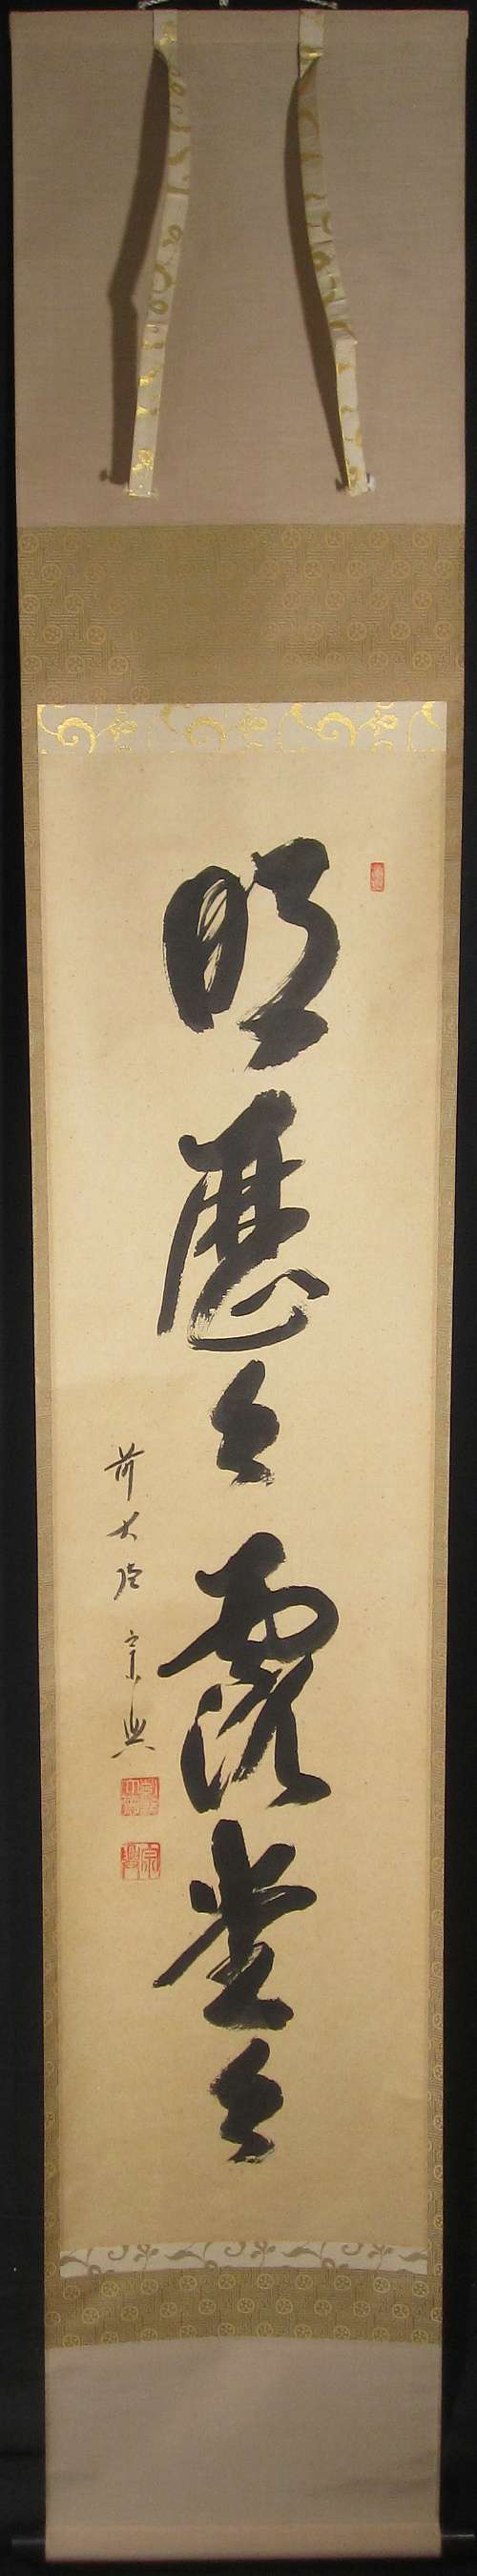 明歴々露堂々
前大徳宗興